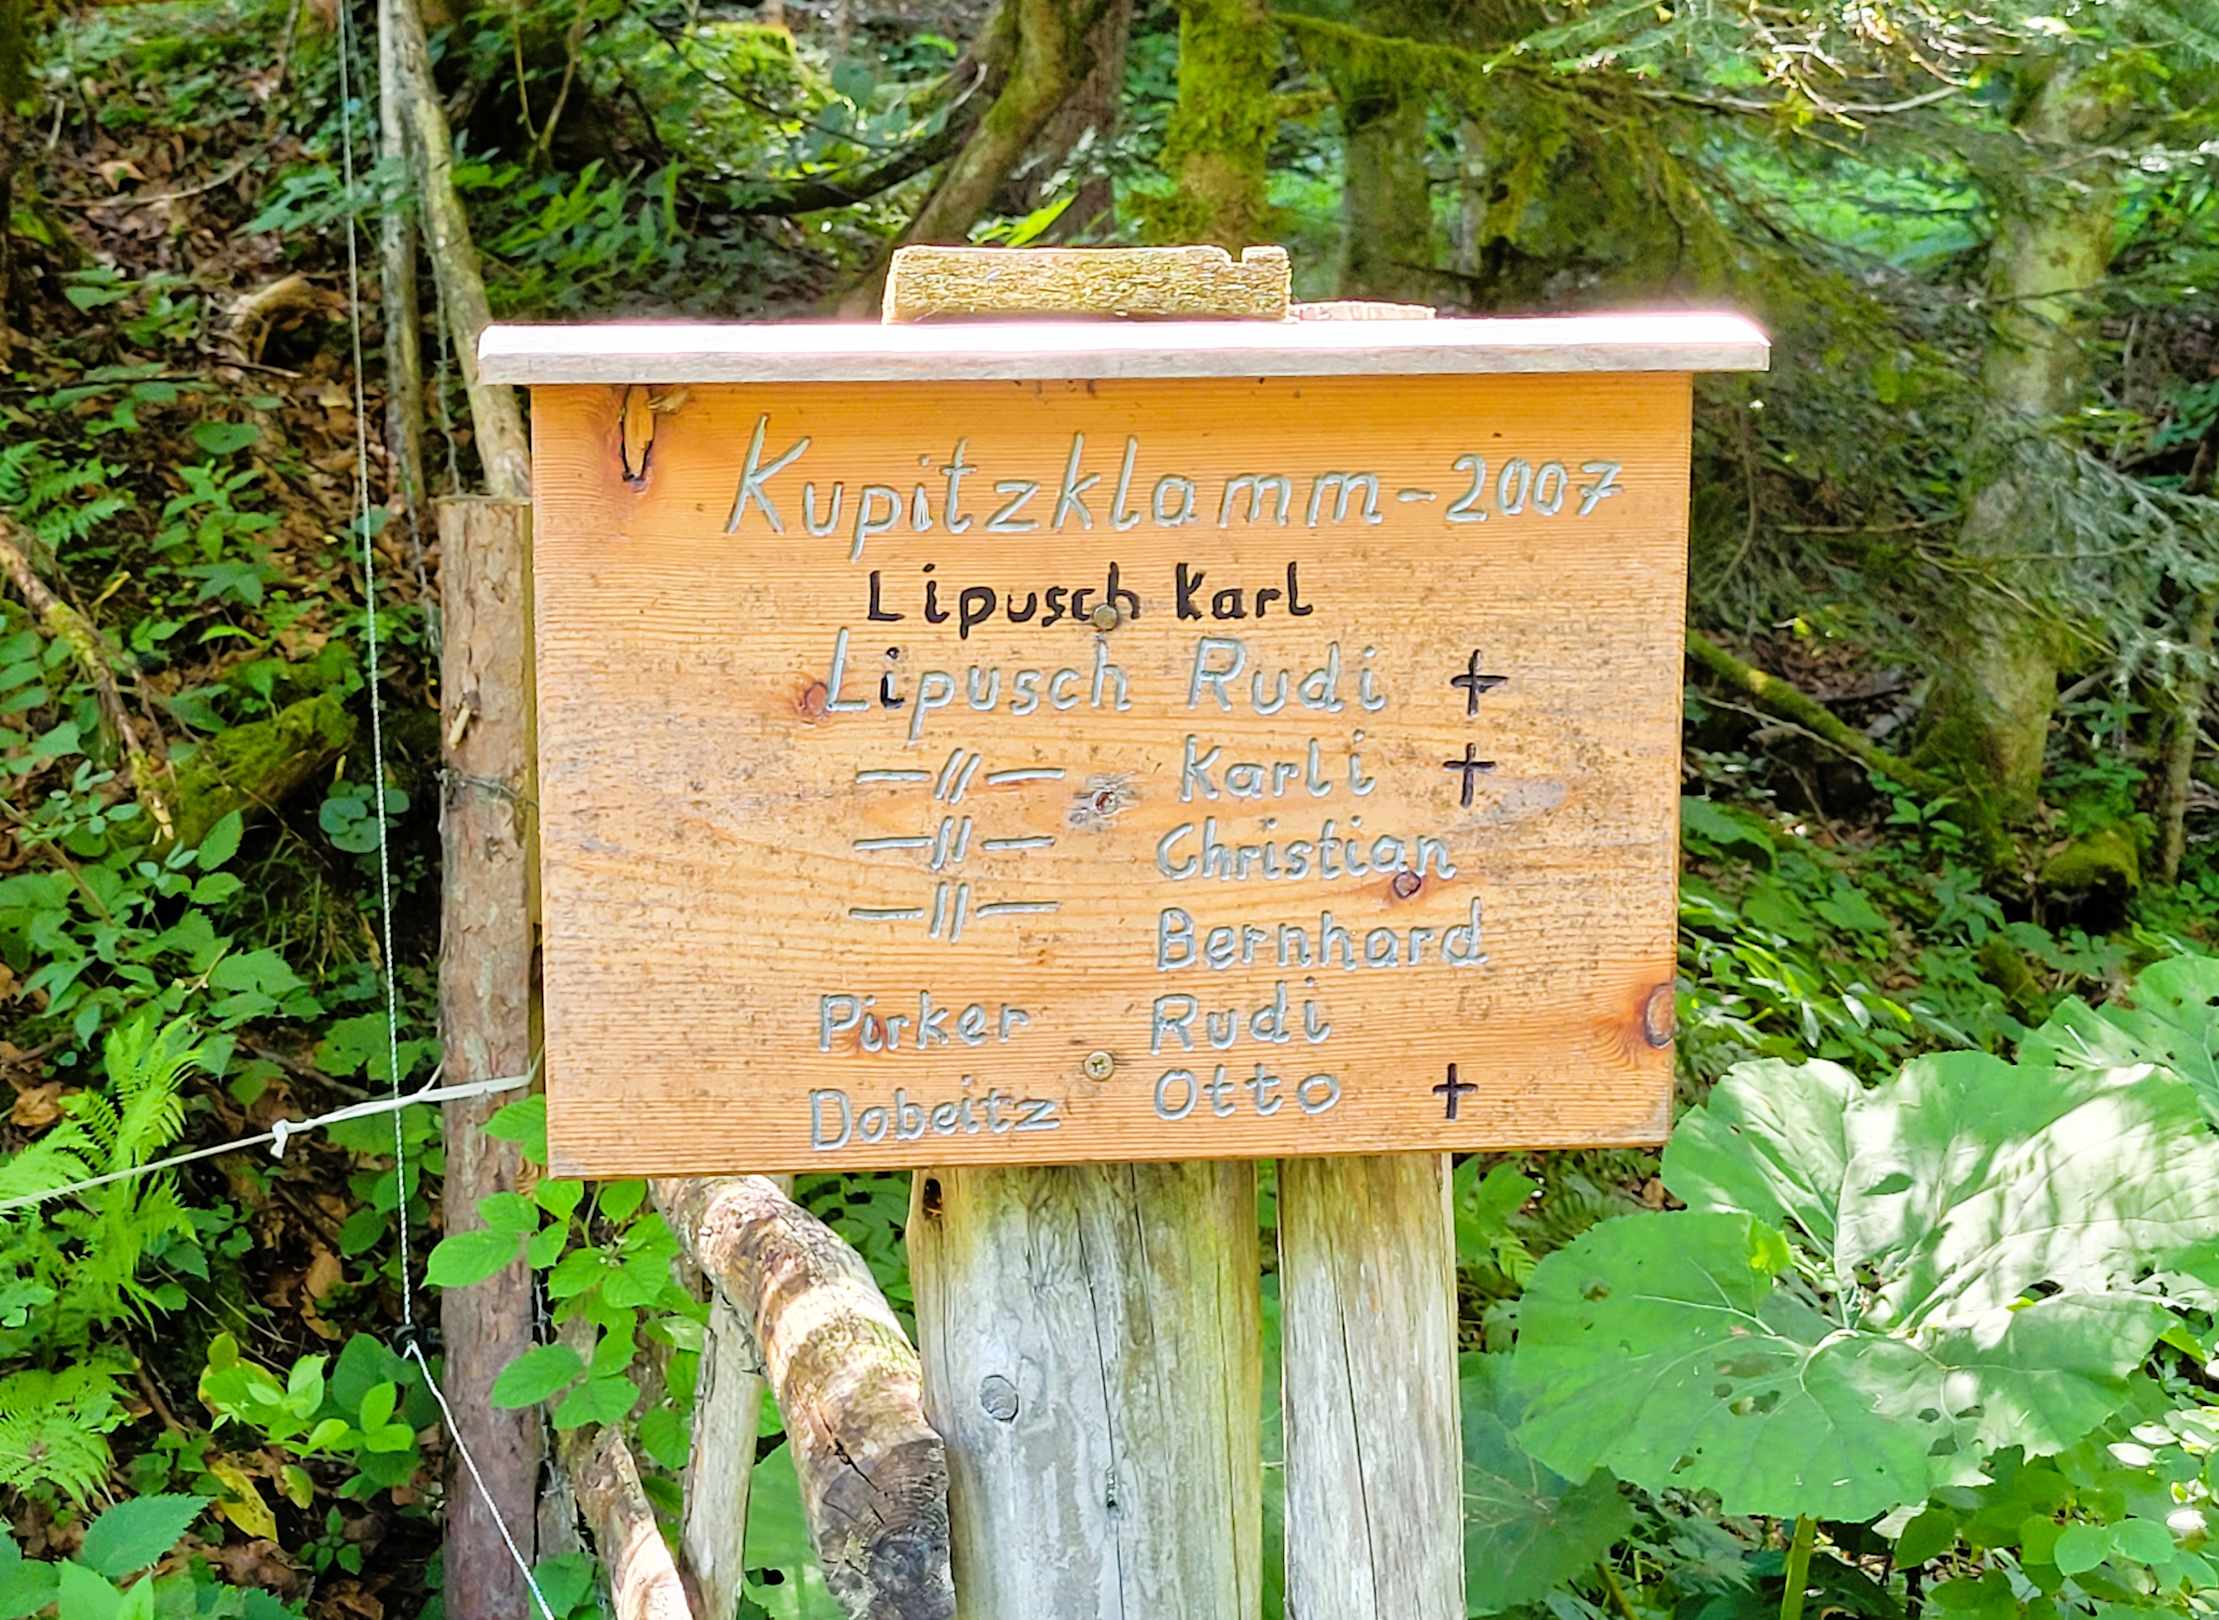 Kupitzklamm - 2007
Lipusch Karl
Lipusch Rudi +
—//— Karli +
—//— Christian
—//— Bernhard
Pirker Rudi
Dobeitz Otto +